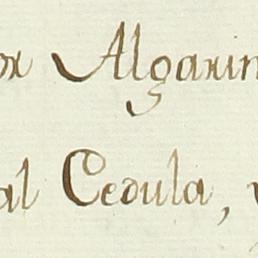 or Algarin
al Cedula,